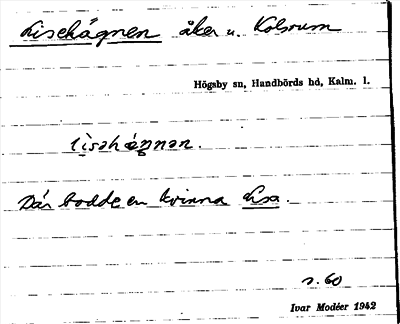 Lisehägnen åker u. Kolsrum
Högsby sn, Handbörds hd, Kalm. l.
Där bodde en kvinna Lisa.
s. 60
Ivar Modéer 1942